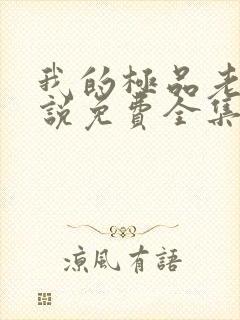 我的極品老
說免費全集
涼風有語